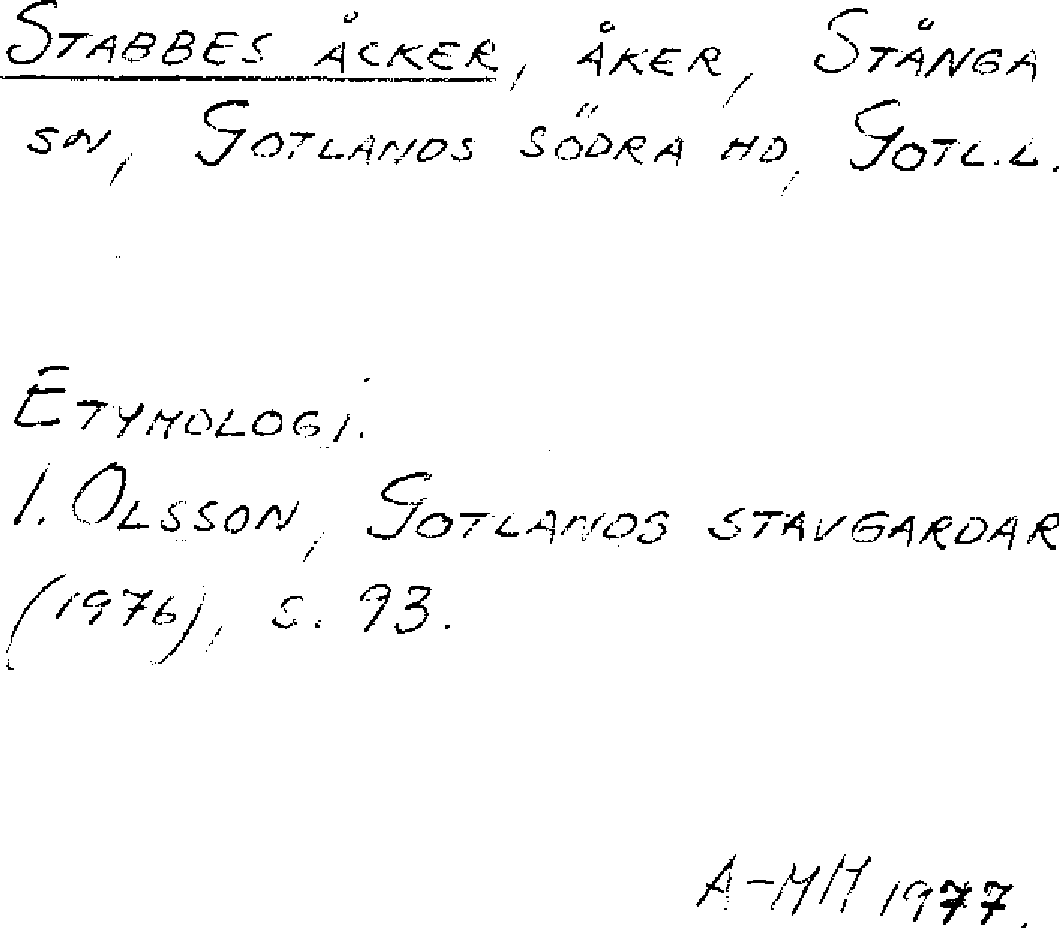 Stabbes åcker, åker, Stånga
sn, Gotlands södra hd, Gotl.l.
Etymologi.
I. Olsson, Gotlands stavgardar
(1976), s. 93.
A-MH 1977.